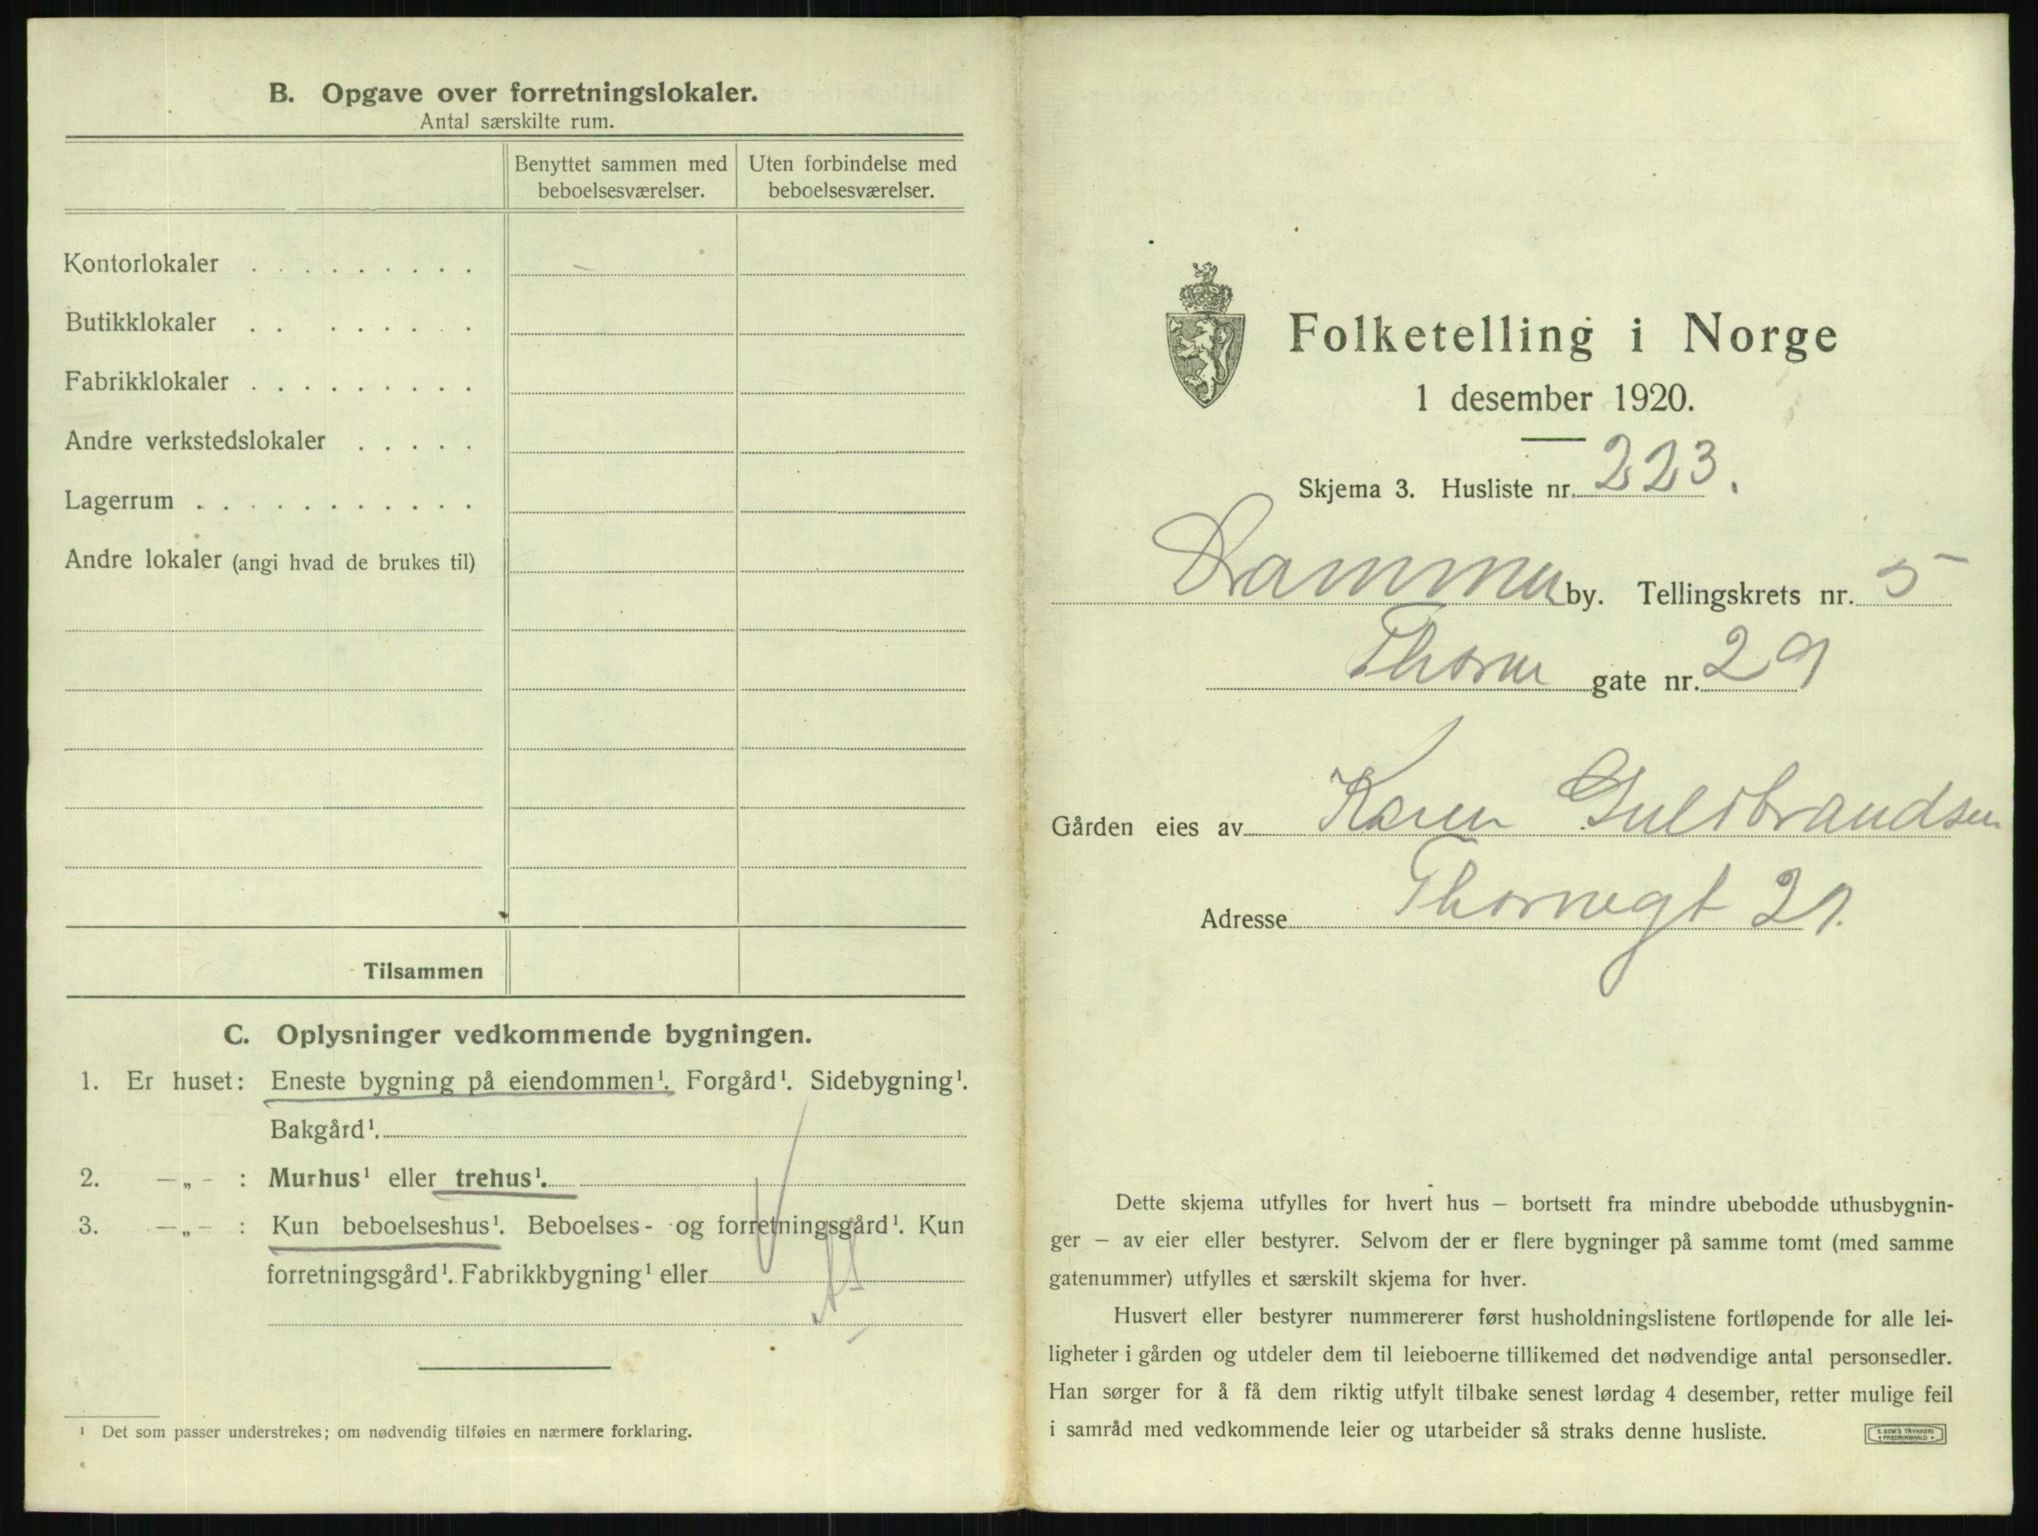 B. Opgave over forretningslokaler.
Antal særskilte rum.
Benyttet sammen med beboelsesværelser.
Uten forbindelse med beboelsesværelser.
Kontorlokaler . . . . . . . . .
Butikklokaler . . . . . . . .
Fabrikklokaler . . . . . . . . .
Andre verkstedslokaler . . . . .
Lagerrum . . . . . . . . . . .
Andre lokaler (angi hvad de brukes til)
Tilsammen
C. Oplysninger vedkommende bygningen.
1. Er huset: Eneste bygning på eiendommen¹. Forgård¹. Sidebygning¹.
Bakgård¹.
2. —„— : Murhus¹ eller trehus¹.
3. —„— : Kun beboelseshus¹. Beboelses- og forretningsgård¹. Kun
forretningsgård¹. Fabrikkbygning¹ eller
¹ Det som passer understrekes; om nødvendig tilføies en nærmere forklaring.
Folketelling i Norge
1 desember 1920.
Skjema 3. Husliste nr. 223.
Drammen by. Tellingskrets nr. 5
Thorne gate nr. 29
Gården eies av Karen Guldbrandsen
Adresse Thornegt 29.
Dette skjema utfylles for hvert hus — bortsett fra mindre ubebodde uthusbygnin-
ger — av eier eller bestyrer. Selvom der er flere bygninger på samme tomt (med samme
gatenummer) utfylles et særskilt skjema for hver.
Husvert eller bestyrer nummererer først husholdningslistene fortløpende for alle lei-
ligheter i gården og utdeler dem til leieboerne tillikemed det nødvendige antal personsedler.
Han sørger for å få dem riktig utfylt tilbake senest lørdag 4 desember, retter mulige feil
i samråd med vedkommende leier og utarbeider så straks denne husliste.
E. SEM'S TRYKKERI
FREDRIKSHALD